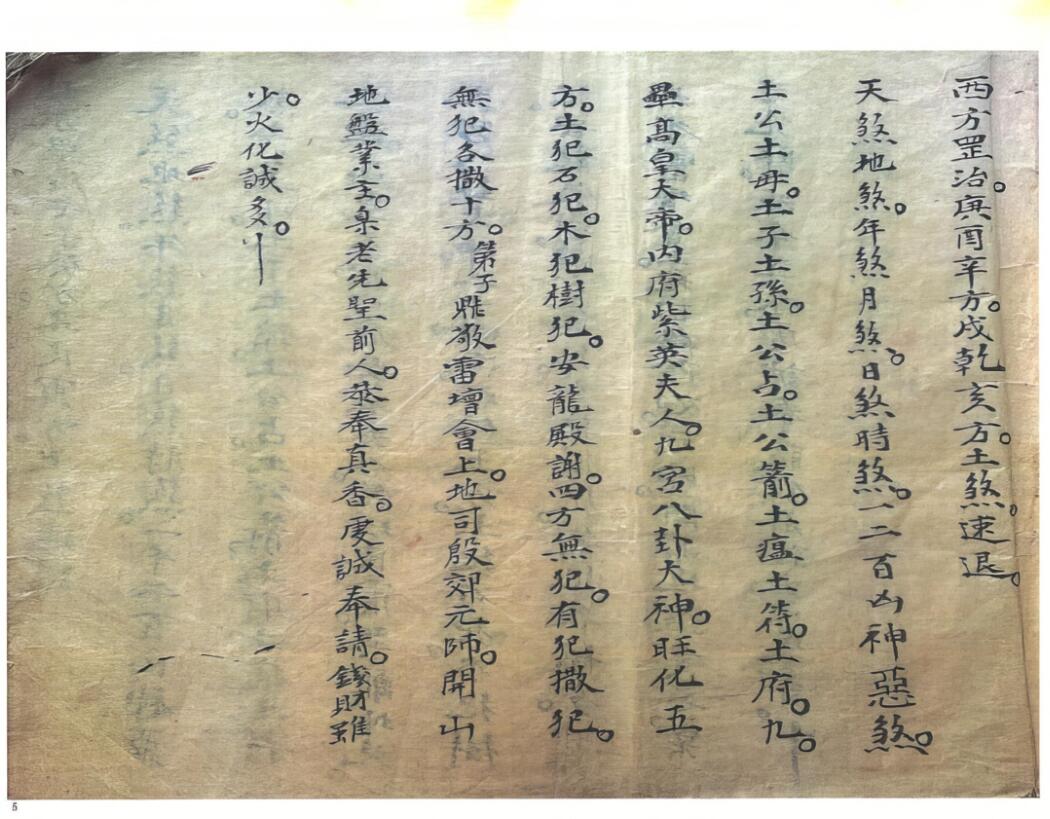 西方罡治。庚酉辛方。戌乾亥方。土煞。速退。
天煞地煞。年煞月煞。日煞時煞。一二百凶神惡煞。
土公土母。土子土孫。土公占。土公箭。土瘟土符。土府。九
壘高皇大帝。內府紫英夫人。九宮八卦大神。旺化五
方。土犯石犯。木犯樹犯。安龍殿謝。四方無犯。有犯撒犯。
無犯各撒十方。弟子 敬雷壇會上。地司殷郊元帥。開山
地盤業主。杲老先聖前人。恭奉真香。虔誠奉請。錢財雖
少。火化誠多。
5